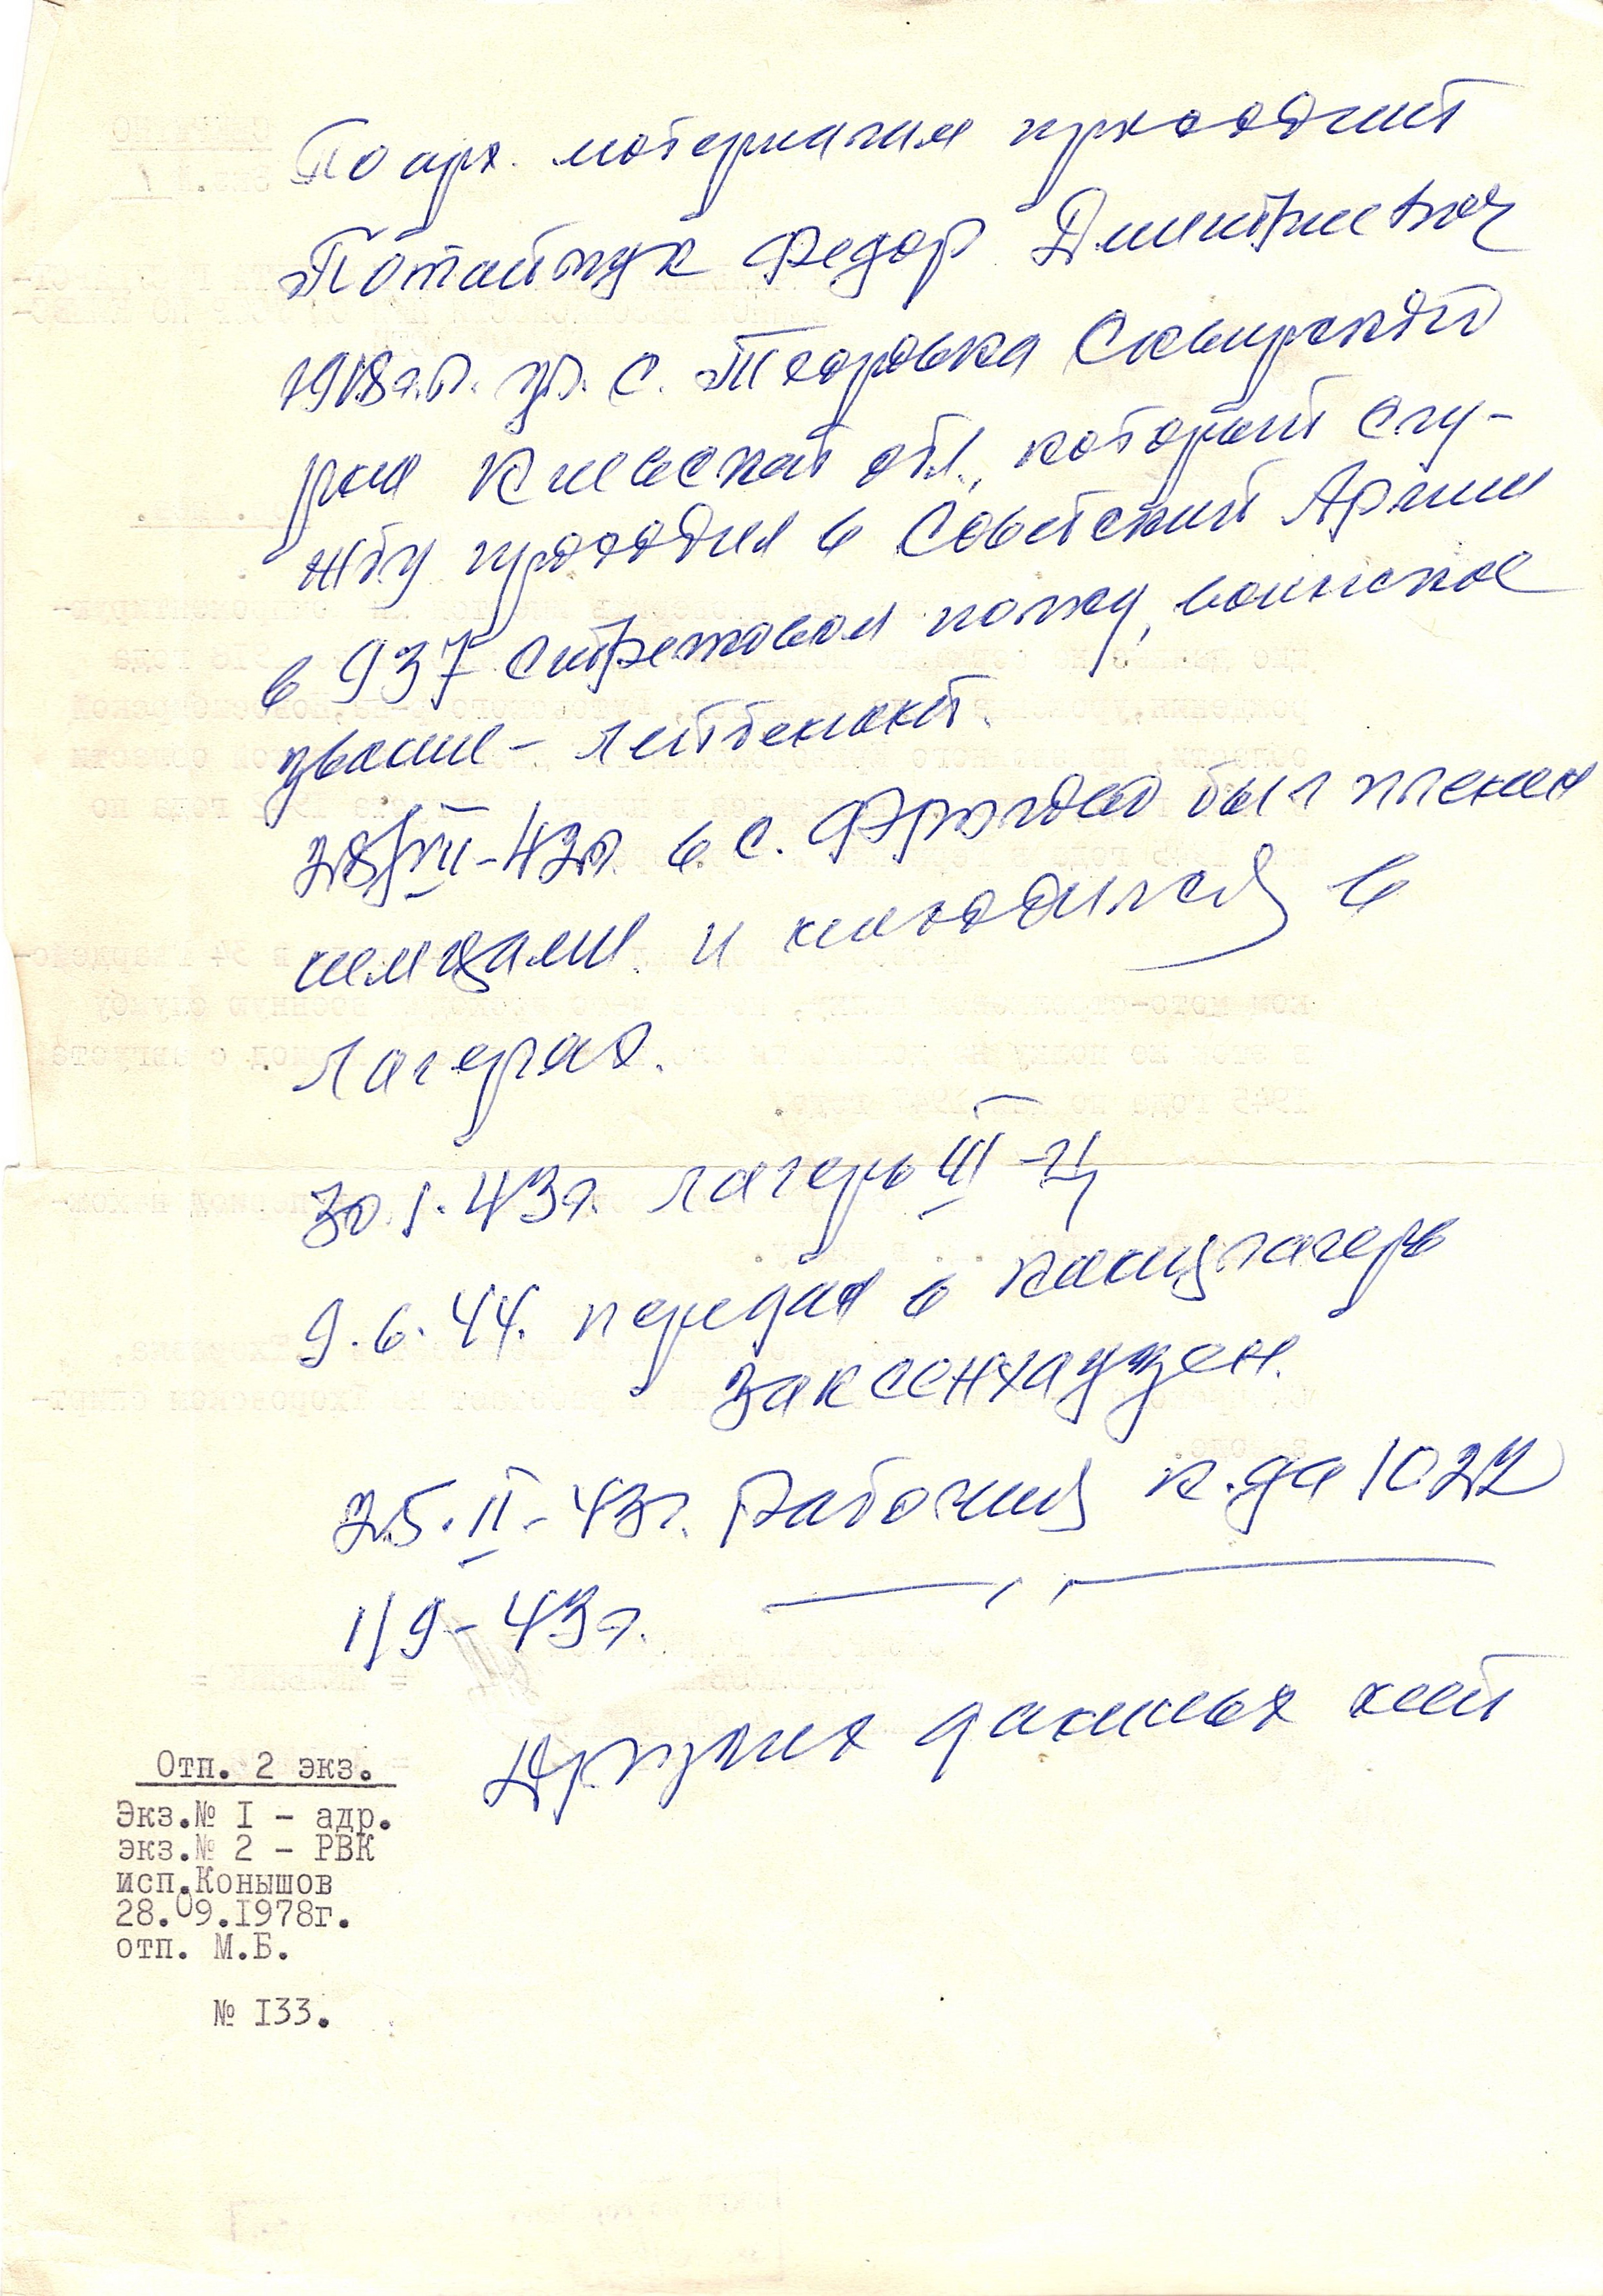 По арх. материалам проходит
Потайчук Федор Дмитриевич
1918 г.р. ур. с. Тхоровка Сквирского
р-на Киевской обл., который слу-
жбу проходил в Советской Армии
в 937 стрелковом полку, воинское
звание - лейтенант.
28/VII-42г. в с. был пленен
немцами и находился в
лагерях.
30.I.43г. лагерь III-Ц
9.6.44. передан в концлагерь
Заксенхаузен.
25.II-43г. Рабочая к.да 1022
1/9-43г. —〃—
Других данных нет
Отп. 2 экз.
Экз.№ I - адр.
экз.№ 2 - РВК
исп.Конышов
28.09.1978г.
отп. М.Б.
№ I33.